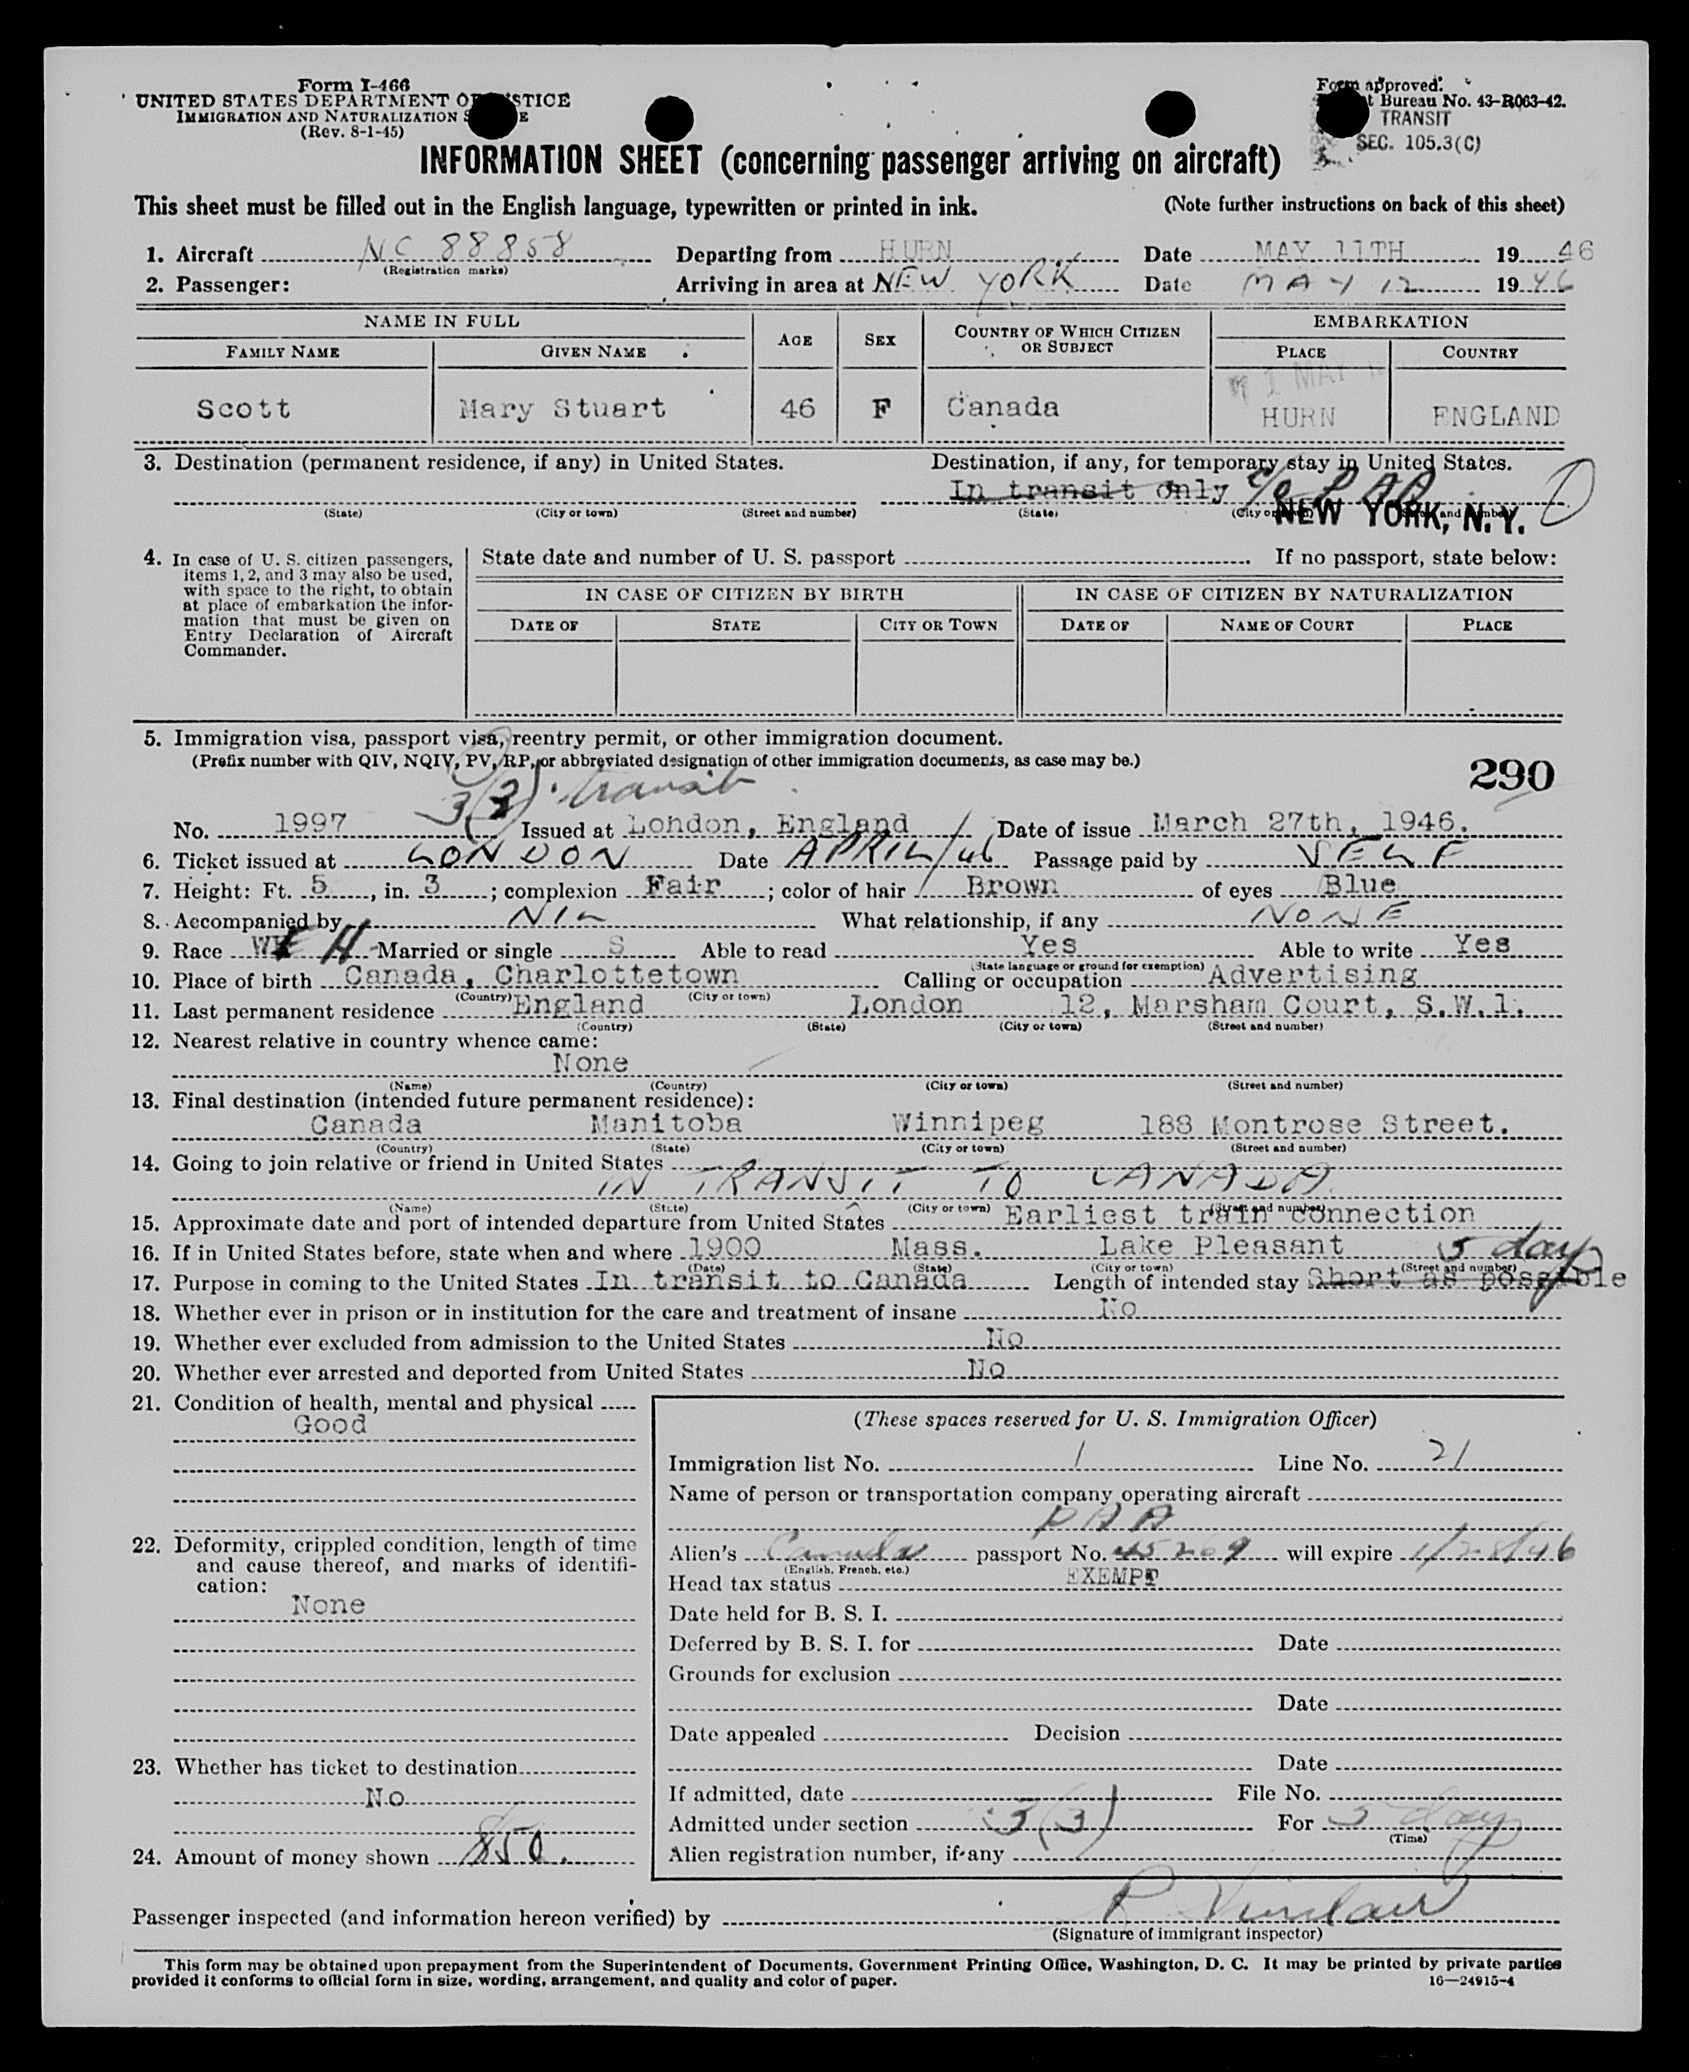 Form I-466
UNITED STATES DEPARTMENT OF JUSTICE
IMMIGRATION AND NATURALIZATION SERVICE
(Rev. 8-1-45)
Form approved.
Budget Bureau No. 43-R063-42.
TRANSIT
SEC. 105.3(C)
INFORMATION SHEET (concerning passenger arriving on aircraft)
This sheet must be filled out in the English language, typewritten or printed in ink. (Note further instructions on back of this sheet)
1. Aircraft NC 88858 Departing from HURN Date MAY 11TH 1946
(Registration marks)
2. Passenger: Arriving in area at NEW YORK Date MAY 12 1946
NAME IN FULL AGE SEX COUNTRY OF WHICH CITIZEN OR SUBJECT EMBARKATION
FAMILY NAME GIVEN NAME PLACE COUNTRY
11 MAY
Scott Mary Stuart 46 F Canada HURN ENGLAND
3. Destination (permanent residence, if any) in United States. Destination, if any, for temporary stay in United States.
In transit only c/o PAA
(State) (City or town) (Street and number) (State) (City or town) (Street and number)
NEW YORK, N.Y.
4. In case of U. S. citizen passengers, items 1, 2, and 3 may also be used, with space to the right, to obtain at place of embarkation the information that must be given on Entry Declaration of Aircraft Commander.
State date and number of U. S. passport If no passport, state below:
IN CASE OF CITIZEN BY BIRTH IN CASE OF CITIZEN BY NATURALIZATION
DATE OF STATE CITY OR TOWN DATE OF NAME OF COURT PLACE
5. Immigration visa, passport visa, reentry permit, or other immigration document.
(Prefix number with QIV, NQIV, PV, RP, or abbreviated designation of other immigration documents, as case may be.)
290
3(3) transit
No. 1997 Issued at London, England Date of issue March 27th, 1946.
6. Ticket issued at LONDON Date APRIL/46 Passage paid by SELF
7. Height: Ft. 5, in. 3; complexion Fair; color of hair Brown of eyes Blue
8. Accompanied by NIL What relationship, if any NONE
9. Race Married or single S Able to read Yes Able to write Yes
(State language or ground for exemption)
10. Place of birth Canada, Charlottetown Calling or occupation Advertising
(Country) (City or town)
11. Last permanent residence England London 12, Marsham Court, S.W.1.
(Country) (State) (City or town) (Street and number)
12. Nearest relative in country whence came:
None
(Name) (Country) (City or town) (Street and number)
13. Final destination (intended future permanent residence):
Canada Manitoba Winnipeg 188 Montrose Street.
(Country) (State) (City or town) (Street and number)
14. Going to join relative or friend in United States
IN TRANSIT TO CANADA
(Name) (State) (City or town) (Street and number)
15. Approximate date and port of intended departure from United States Earliest train connection
16. If in United States before, state when and where 1900 Mass. Lake Pleasant
(Date) (State) (City or town) (Street and number)
5 days
17. Purpose in coming to the United States In transit to Canada Length of intended stay Short as possible
18. Whether ever in prison or in institution for the care and treatment of insane No
19. Whether ever excluded from admission to the United States No
20. Whether ever arrested and deported from United States No
21. Condition of health, mental and physical
Good
22. Deformity, crippled condition, length of time and cause thereof, and marks of identification:
None
23. Whether has ticket to destination
No
24. Amount of money shown $50.
(These spaces reserved for U. S. Immigration Officer)
Immigration list No. 1 Line No. 21
Name of person or transportation company operating aircraft
PAA
Alien's Canada passport No. 45269 will expire 1/28/46
(English, French, etc.)
Head tax status EXEMPT
Date held for B. S. I.
Deferred by B. S. I. for Date
Grounds for exclusion
Date
Date appealed Decision
Date
If admitted, date File No.
Admitted under section 3(3) For 5 days
(Time)
Alien registration number, if any
Passenger inspected (and information hereon verified) by
(Signature of immigrant inspector)
This form may be obtained upon prepayment from the Superintendent of Documents, Government Printing Office, Washington, D. C. It may be printed by private parties
provided it conforms to official form in size, wording, arrangement, and quality and color of paper. 16—24915-4